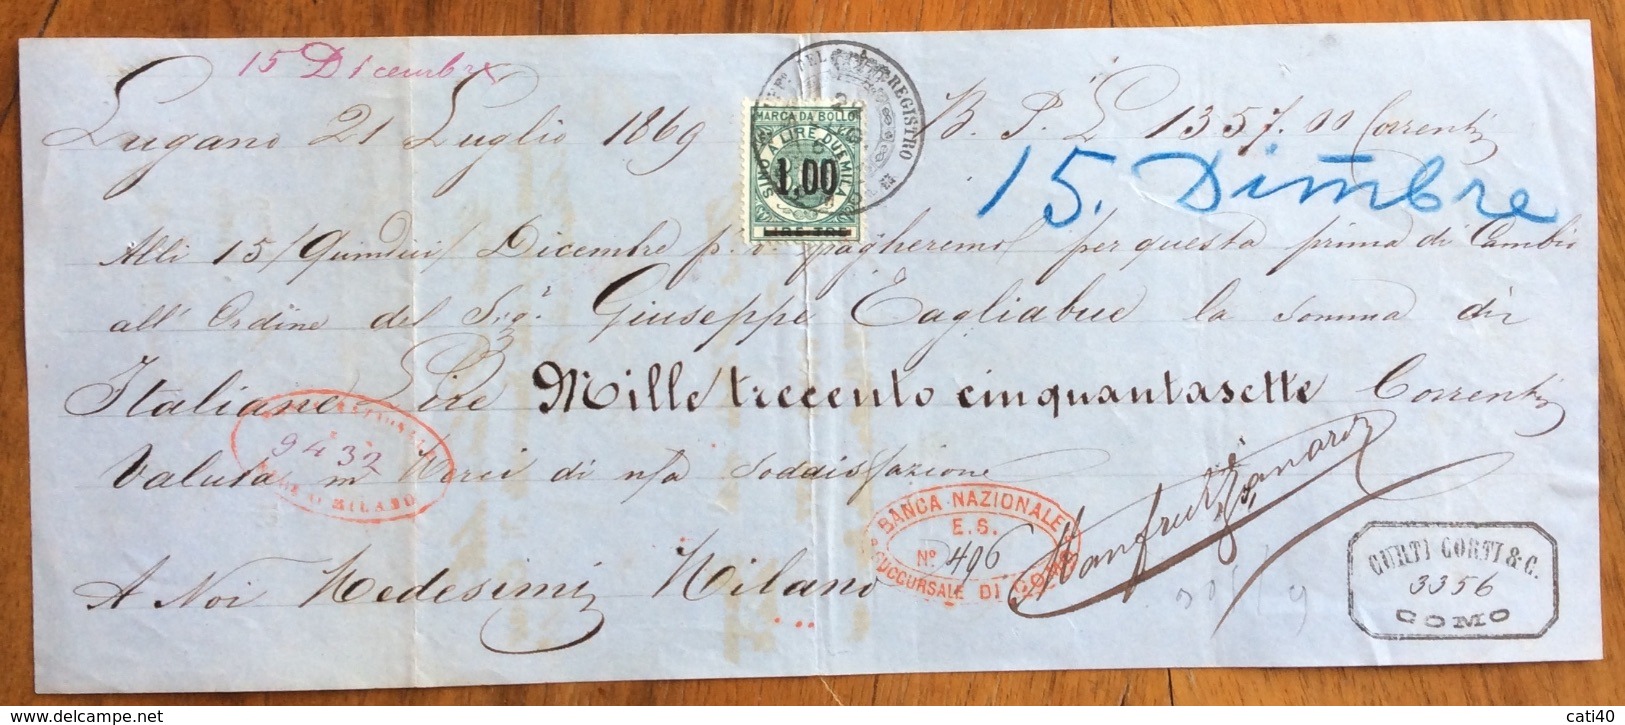 15 Dicembre
Lugano 21 Luglio 1869 B. P. L 1357.00 Correnti
15. Dimbre
MARCA DA BOLLO
SINO A LIRE DUEMILA
1,00
LIRE TRE
DEL REGISTRO
Alli 15/Quindici/ Dicembre p. v. pagheremo per questa prima di Cambio
all' Ordine del Sigr. Giuseppe Tagliabue la somma di
Italiane Lire Mille trecento cinquantasette Correnti
Valuta in Merci di n/a Soddisfazione
9432
MILANO
BANCA NAZIONALE
E. S.
No. 496
SUCCURSALE DI COMO
A Noi Medesimi Milano
CURTI CORTI & C.
3356
COMO
cati40